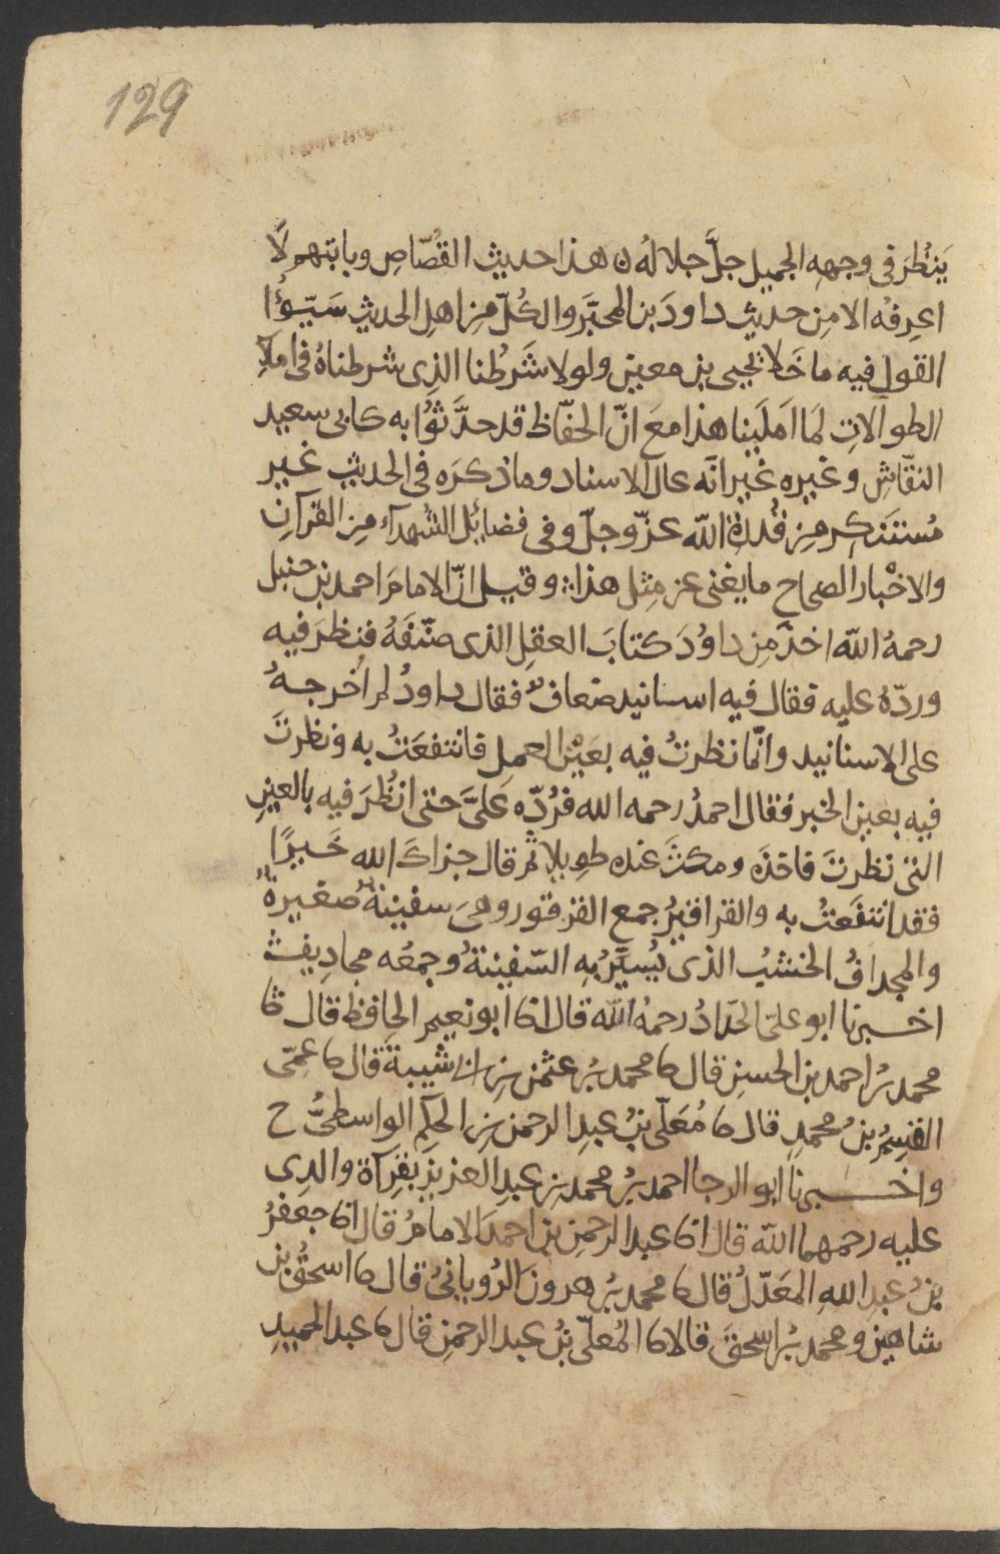 129
يَنْظُرَ في وجهِهِ الجميل جلَّ جلالهُ ن هذا حديث القُصّاصِ وبابتهم لَا
اعرِفهُ الا مِن حديثِ داودَ بن المحبَّر والكُلّ مِن اهلِ الحديثِ سَيّؤُا
القول فيه ما خَلا يحيى بن معين ولولا شَرطُنا الذي شرطناهُ في املآءِ
الطوالاتِ لمَا امَلَينا هذا معَ انّ الحفّاظ قد حدَّثوُا به كابى سعيد
النقّاشِ وغيره غير انّه عالى الاسناد وما ذكرَه في الحديثِ غير
مُستنكرٍ مِن قُدرةِ اللّه عزّ وجلّ وفى فضائل الشُهدآء مِن القرآنِ
والاخْبار الصحاحِ ما يغنى عن مِثل هذا ۞ وقيل انّ الامامَ احمد بن حنبل
رحمهُ اللّه اخذ مِن داوُدَ كتابَ العقلِ الذى صنّفَهُ فنظرَ فيه
وردّهُ عليه فقال فيه اسانيد ضعافٌ فقال داودُ لم اُخرجهُ
على الاسانيد وانّما نظرتُ فيه بعَيْن العمل فانتفعَتُ به ونظرتَ
فيه بعين الخبر فقال احمدُ رحمه الله فرُدّه عَلىَّ حتى انظُرَ فيه بالعينِ
التى نظرتَ فاخذَه ومكثَ عنده طويلاً ثم قال جزاكَ الله خَيرًا
فقد انتفَعتُ به والقراقيرُ جمع القرقور وهىَ سفينةٌ صغيرةٌ
والمجدافُ الخشبُ الذى يُسيَّرُ بِه السّفينةُ وجمعُه مجاديفُ
اخبرنا ابو علىّ الحدّادُ رحمهُ اللّه قال انا ابو نعيم الحافظ قال ثنا
محمد بنُ احمد بن الحسنِ قال نا محمد بنُ عثمن بن ابى شيبةَ قال نا عمّى
القسِمُ بنُ محمدٍ قال نا مُعَلّى بنُ عبدِ الرحمن بن الحكِم الواسطىُّ ح
واخبرنا ابو الرجا احمد بنُ محمد بن عبدِ العزيز بقِرآةِ والدِى
عليه رحمهما اللّه قال انا عبد الرحمنِ بن احمدَ الامامُ قال انا جعفرُ
بنُ عبدِ اللهِ المعَدّلُ قال نا محمد بنُ هرونَ الرُويانىُّ قال نا اسحقُ بن
شاهين ومحمد بنُ اسحقَ قالا نا المُعلّى بنُ عبد الرحمنِ قال نا عبد الحميدِ